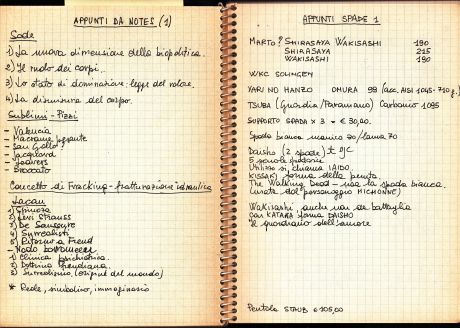 APPUNTI DA NOTES (1)
Sade
1) La nuova dimensione della biopolitica.
2) Il ruolo dei corpi.
3) Lo stato di dominazione: legge del volere.
4) La dismisura del corpo.
Sublimi - Pizzi
- Valencia
- Macramé
- San Gallo
- Jacquard
- Broccato
Concetto di Fracking - fratturazione idraulica
Lacan
1) Spinoza
2) Levi Strauss
3) De Saussure
4) Surrealisti
5) Ritorno a Freud
- Nodo borromeo
1) Clinica psichiatrica.
2) Dottrina freudiana.
3) Surrealismo (del mondo)
* Reale, simbolico, immaginario
APPUNTI SPADE 1
MARTO? SHIRASAYA WAKISASHI 190
SHIRASAYA 215
WAKISASHI 190
WKC SOLINGEN
YARI NO HANZO OMURA 99 (acc. AISI 1045-
TSUBA (Guardia/Paramano) Carbonio 1095
SUPPORTO SPADA x 3 = € 30,00.
Spada bianca manico 30/lama 70
Daisho (2 spade)
5 scuole
Utilizzo si chiama IAIDO.
KISSAKI forma della punta.
The Walking Dead - usa la spada bianca.
(usata dal personaggio MICHONNE)
Wakisashi, anche usi in battaglia
con KATANA forma DAISHO
Il guardiano dell'onore
Pentola STAUB € 105,00